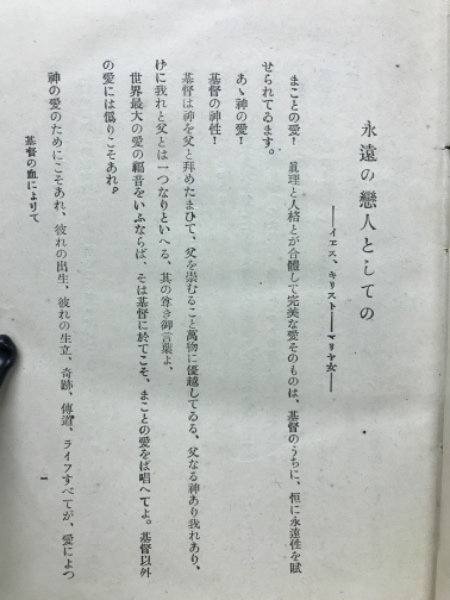 永遠の戀人としての
――イエス、キリスト――マリヤ女――
まことの愛！　眞理と人格とが合體して完美な愛そのものは、基督のうちに、恒に永遠性を賦
せられてゐます。
あゝ神の愛！
基督の神性！
基督は神を父と拜めたまひて、父を崇むること萬物に優越してゐる、父なる神あり我れあり、
けに我れと父とは一つなりといへる、其の尊き御言葉よ、
世界最大の愛の福音をいふならば、そは基督に於てこそ、まことの愛をば唱へてよ。基督以外
の愛には僞りこそあれ。
神の愛のためにこそあれ、彼れの出生、彼れの生立、奇跡、傳道、ライフすべてが、愛によつ
基督の血によりて